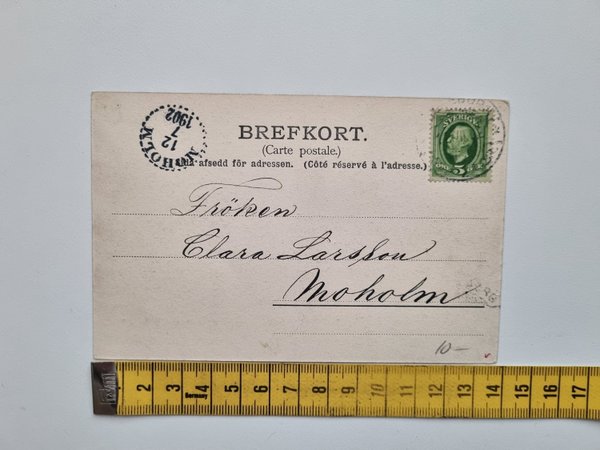 MOHOLM
12
7
1902
BREFKORT.
(Carte postale.)
afsedd för adressen. (Côté réservé à l'adresse.)
SVERIGE
5
Fröken
Clara Larsson
Moholm
10-
2 3 4 5 6 7 8 9 10 11 12 13 14 15 16 17
Germany